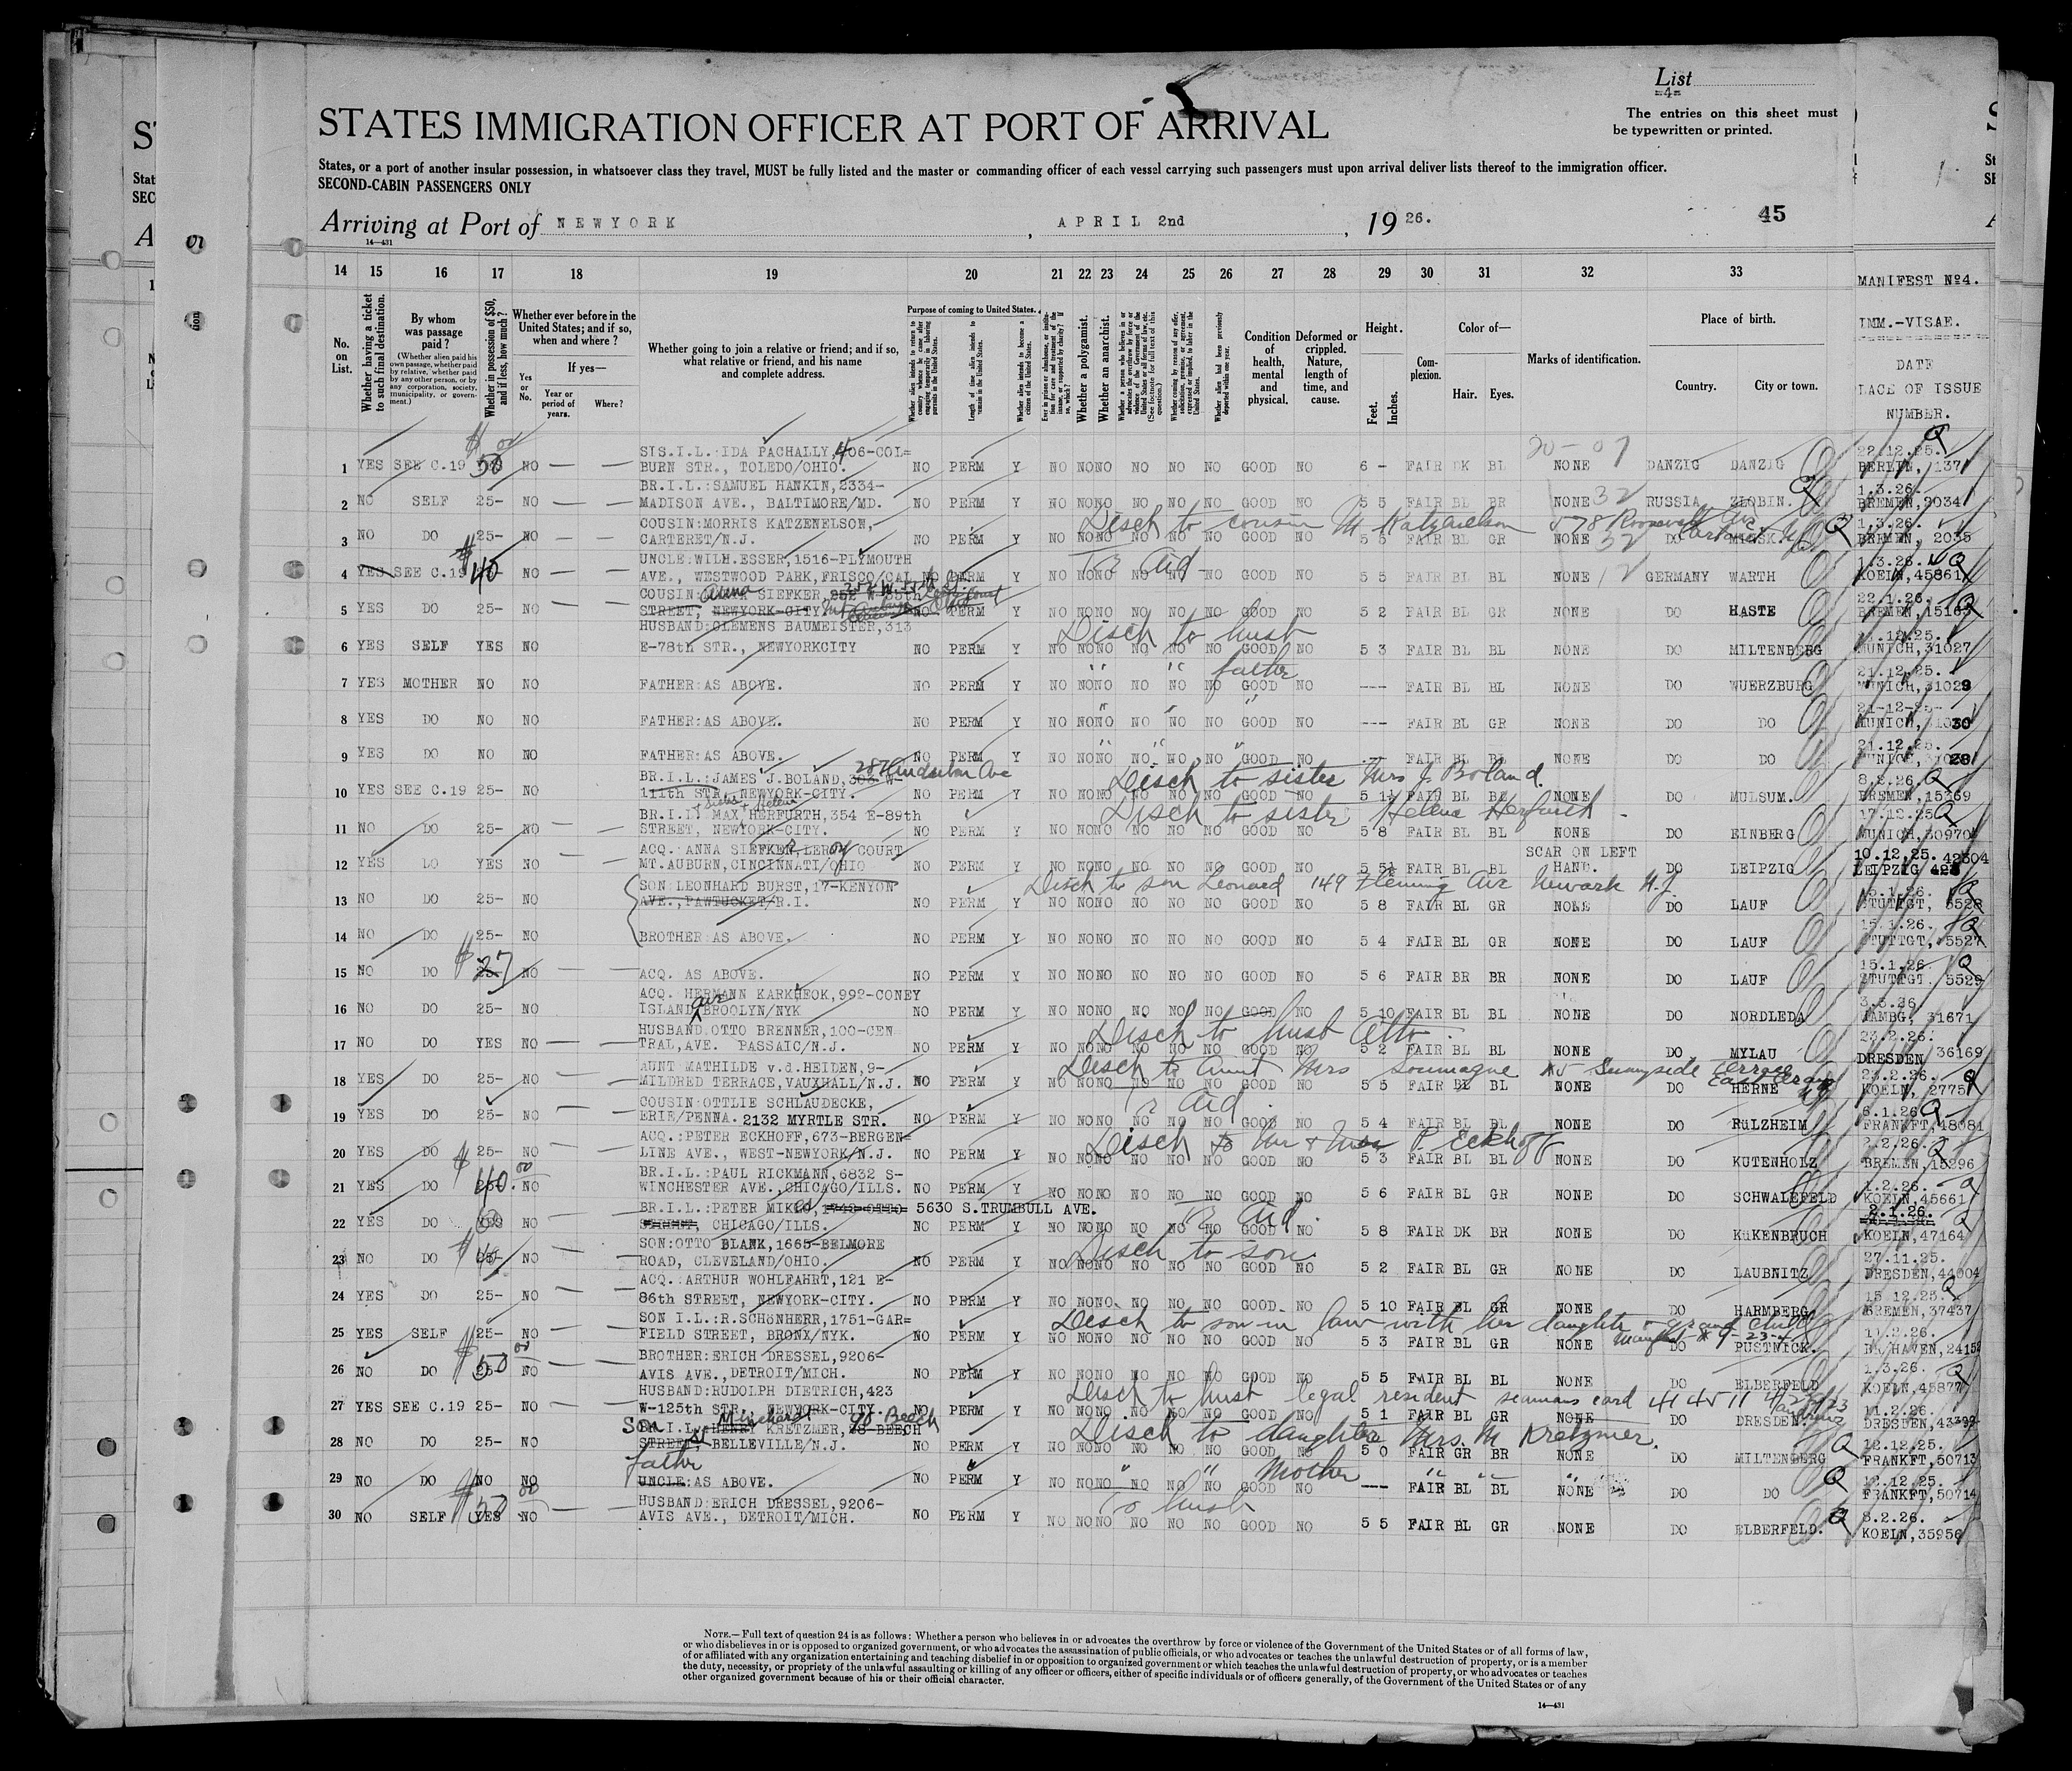 List
-4-
STATES IMMIGRATION OFFICER AT PORT OF ARRIVAL
The entries on this sheet must
be typewritten or printed.
States, or a port of another insular possession, in whatsoever class they travel, MUST be fully listed and the master or commanding officer of each vessel carrying such passengers must upon arrival deliver lists thereof to the immigration officer.
SECOND-CABIN PASSENGERS ONLY
Arriving at Port of NEWYORK, APRIL 2nd, 1926.
45
14—431
14 15 16 17 18 19 20 21 22 23 24 25 26 27 28 29 30 31 32 33
MANIFEST No4.
IMM.-VISAE.
DATE
LACE OF ISSUE
NUMBER.
No. on List.
Whether having a ticket to such final destination.
By whom was passage paid?
(Whether alien paid his own passage, whether paid by relative, whether paid by any other person, or by any corporation, society, municipality, or government.)
Whether in possession of $50, and if less, how much?
Whether ever before in the United States; and if so, when and where?
Yes or No.
If yes—
Year or period of years.
Where?
Whether going to join a relative or friend; and if so, what relative or friend, and his name and complete address.
Purpose of coming to United States.
Length of time alien intends to remain in the United States.
Whether alien intends to become a citizen of the United States.
Whether a polygamist.
Whether an anarchist.
Condition of health, mental and physical.
Deformed or crippled. Nature, length of time, and cause.
Height.
Feet. Inches.
Complexion.
Color of—
Hair. Eyes.
Marks of identification.
Place of birth.
Country. City or town.
20-07
SIS.I.L.:IDA PACHALLY, 406-COL= 22.12.25.
1 YES SEE C.19 50 NO — — BURN STR., TOLEDO/OHIO. NO PERM Y NO NO NO NO NO NO GOOD NO 6 - FAIR DK BL NONE DANZIG DANZIG BERLIN, 137
BR.I.L.:SAMUEL HANKIN,2334- 1.3.26.
2 NO SELF 25- NO — — MADISON AVE., BALTIMORE/MD. NO PERM Y NO NO NO NO NO NO GOOD NO 5 5 FAIR BL BR NONE 32 RUSSIA ZLOBIN. BREMEN,2034
COUSIN:MORRIS KATZENELSON, Disch to cousin M Katzenelson 578 Roosevelt Av 1.3.26.
3 NO DO 25- NO — — CARTERET/N.J. NO PERM Y NO NO NO NO NO NO GOOD NO 5 5 FAIR BL GR NONE 32 DO MINSK. BREMEN, 2035
UNCLE:WILH.ESSER,1516-PLYMOUTH To Aid 1.3.26.
4 YES SEE C.19 $40 NO — — AVE., WESTWOOD PARK,FRISCO/CAL NO PERM Y NO NO NO NO NO NO GOOD NO 5 5 FAIR BL BL NONE 12 GERMANY WARTH KOELN,45861
COUSIN: Anna SIEFKER, 252 W 55th 22.1.26.
5 YES DO 25- NO — — STREET, NEWYORK-CITY NO PERM Y NO NO NO NO NO NO GOOD NO 5 2 FAIR BL GR NONE DO HASTE BREMEN,15163
HUSBAND:CLEMENS BAUMEISTER,313 Disch to husb
6 YES SELF YES NO E-78th STR., NEWYORKCITY NO PERM Y NO NO NO NO NO NO GOOD NO 5 3 FAIR BL BL NONE DO MILTENBERG MUNICH,31027
" " father 21.12.25.
7 YES MOTHER NO NO FATHER:AS ABOVE. NO PERM Y NO NO NO NO NO NO GOOD NO --- FAIR BL BL NONE DO WUERZBURG MUNICH,31029
" " " 21-12-25-
8 YES DO NO NO FATHER:AS ABOVE. NO PERM Y NO NO NO NO NO NO GOOD NO --- FAIR BL GR NONE DO DO MUNICH, 31030
21.12.25.
9 YES DO NO NO FATHER:AS ABOVE. NO PERM Y NO NO NO NO NO NO GOOD NO --- FAIR BL BL NONE DO DO MUNICH,31028
BR.I.L.:JAMES J.BOLAND,302 W- Disch to sister Mrs J Boland. 8.2.26.
10 YES SEE C.19 25- NO 111th STR. NEWYORK-CITY. NO PERM Y NO NO NO NO NO NO GOOD NO 5 1½ FAIR BL BL NONE DO MULSUM. BREMEN,15369
BR.I.L: MAX HERFURTH,354 E-89th Disch to sister Helene Herfurth 17.12.25
11 NO DO 25- NO — — STREET, NEWYORK-CITY. NO PERM Y NO NO NO NO NO NO GOOD NO 5 8 FAIR BL BL NONE DO EINBERG MUNICH,30970
ACQ. ANNA SIEFKER,LEROY COURT SCAR ON LEFT 10.12.25. 42304
12 YES DO YES NO — — MT.AUBURN,CINCINNATI/OHIO NO PERM Y NO NO NO NO NO NO GOOD NO 5 5½ FAIR BL BL HAND. DO LEIPZIG LEIPZIG 423
SON:LEONHARD BURST,17-KENYON Disch to son Leonard 149 Fleming Ave Newark N.J. 15.1.26.
13 NO DO 25- NO AVE.,PAWTUCKET/R.I. NO PERM Y NO NO NO NO NO NO GOOD NO 5 8 FAIR BL GR NONE DO LAUF STUTTGT, 5528
15.1.26.
14 NO DO 25- NO BROTHER AS ABOVE. NO PERM Y NO NO NO NO NO NO GOOD NO 5 4 FAIR BL GR NONE DO LAUF STUTTGT, 5527
15.1.26.
15 NO DO $27 NO — — ACQ. AS ABOVE. NO PERM Y NO NO NO NO NO NO GOOD NO 5 6 FAIR BR BR NONE DO LAUF STUTTGT. 5529
ACQ. HERMANN KARKHECK,992-CONEY 3.3.26.
16 NO DO 25- NO ISLAND ave BROOLYN/NYK NO PERM Y NO NO NO NO NO NO GOOD NO 5 10 FAIR BL BL NONE DO NORDLEDA HAMBG, 31671
HUSBAND OTTO BRENNER,100-CEN Disch to husb Otto 23.2.26.
17 NO DO YES NO — — TRAL,AVE. PASSAIC/N.J. NO PERM Y NO NO NO NO NO NO GOOD NO 5 2 FAIR BL BL NONE DO MYLAU DRESDEN 36169
AUNT MATHILDE v.d.HEIDEN,9- Disch to Aunt Mrs Soumagne 45 Sunnyside Terrace East Orange NJ 23.2.26.
18 YES DO 25- NO — — MILDRED TERRACE,VAUXHALL/N.J. NO PERM Y NO NO NO NO NO NO GOOD NO 5 5 FAIR BL BL NONE DO HERNE KOELN, 2775
COUSIN:OTTLIE SCHLAUDECKE, To Aid 6.1.26
19 YES DO 25- NO — ERIE/PENNA. 2132 MYRTLE STR. NO PERM Y NO NO NO NO NO NO GOOD NO 5 4 FAIR BL BL NONE DO RüLZHEIM FRANKFT,48081
ACQ.:PETER ECKHOFF,673-BERGEN= Disch to Mr + Mrs P. Eckhoff 2.2.26.
20 YES DO 25- NO — — LINE AVE., WEST-NEWYORK/N.J. NO PERM Y NO NO NO NO NO NO GOOD NO 5 3 FAIR BL BL NONE DO KUTENHOLZ BREMEN,15296
BR.I.L.:PAUL RICKMANN,6832 S- 1.2.26.
21 YES DO $40.00 NO WINCHESTER AVE.,CHICAGO/ILLS. NO PERM Y NO NO NO NO NO NO GOOD NO 5 6 FAIR BL GR NONE DO SCHWALEFELD KOELN,45661
BR.I.L.:PETER MIKLOS, 5630 S.TRUMBULL AVE. To Aid. 2.1.26.
22 YES DO YES NO CHICAGO/ILLS. NO PERM Y NO NO NO NO NO NO GOOD NO 5 8 FAIR DK BR NONE DO KüKENBRUCH KOELN,47164
SON:OTTO BLANK,1665-BELMORE Disch to son 27.11.25.
23 NO DO NO ROAD, CLEVELAND/OHIO. NO PERM Y NO NO NO NO NO NO GOOD NO 5 2 FAIR BL GR NONE DO LAUBNITZ DRESDEN,44004
ACQ. ARTHUR WOHLFAHRT,121 E- 15.12.25.
24 YES DO 25- NO — — 86th STREET, NEWYORK-CITY. NO PERM Y NO NO NO NO NO NO GOOD NO 5 10 FAIR BL GR NONE DO HARMBERG BREMEN,37437
SON I.L.:R.SCHöNHERR,1751-GAR= Disch to son in law with her daughter + grand child 11.2.26.
25 YES SELF 25- NO — — FIELD STREET, BRONX/NYK. NO PERM Y NO NO NO NO NO NO GOOD NO 5 3 FAIR BL GR NONE DO PUSTNICK. BR/HAVEN,24152
BROTHER:ERICH DRESSEL,9206- 1.3.26.
26 NO DO $50.00 NO — — AVIS AVE.,DETROIT/MICH. NO PERM Y NO NO NO NO NO NO GOOD NO 5 5 FAIR BL BL NONE DO ELBERFELD KOELN,45877
HUSBAND:RUDOLPH DIETRICH,423 Disch to husb legal resident seamans card 11.2.26.
27 YES SEE C.19 25- NO W-125th STR., NEWYORK-CITY. NO PERM Y NO NO NO NO NO NO GOOD NO 5 1 FAIR BL GR NONE DO DRESDEN. DRESDEN,43399
SON I.L.:HENRY KRETZMER,78-BEECH 90-Beech Disch to daughter Mrs. M Kretzmer. 12.12.25.
28 NO DO 25- NO STREET, BELLEVILLE/N.J. NO PERM Y NO NO NO NO NO NO GOOD NO 5 0 FAIR GR BR NONE DO MILTENBERG FRANKFT,50713
father " " Mother " " " 12.12.25.
29 NO DO NO NO UNCLE:AS ABOVE. NO PERM Y NO NO NO NO NO NO GOOD NO --- FAIR BL BL NONE DO DO FRANKFT,50714
HUSBAND:ERICH DRESSEL,9206- To husb 8.2.26.
30 NO SELF YES NO — — AVIS AVE., DETROIT/MICH. NO PERM Y NO NO NO NO NO NO GOOD NO 5 5 FAIR BL GR NONE DO ELBERFELD. KOELN,35956
NOTE.—Full text of question 24 is as follows: Whether a person who believes in or advocates the overthrow by force or violence of the Government of the United States or of all forms of law,
or who disbelieves in or is opposed to organized government, or who advocates the assassination of public officials, or who advocates or teaches the unlawful destruction of property, or is a member
of or affiliated with any organization entertaining and teaching disbelief in or opposition to organized government or which teaches the unlawful destruction of property, or who advocates or teaches
the duty, necessity, or propriety of the unlawful assaulting or killing of any officer or officers, either of specific individuals or of officers generally, of the Government of the United States or of any
other organized government because of his or their official character.
14—431